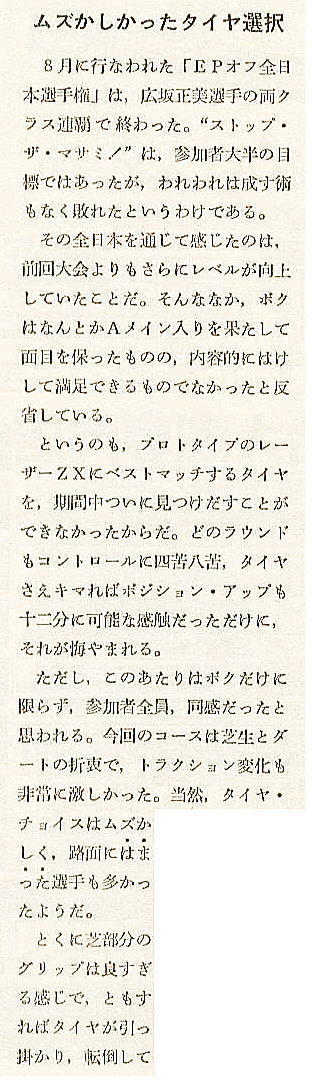 ムズかしかったタイヤ選択
８月に行なわれた「ＥＰオフ全日
本選手権」は，広坂正美選手の両ク
ラス連覇で終わった。“ストップ・
ザ・マサミ！”は，参加者大半の目
標ではあったが，われわれは成す術
もなく敗れたというわけである。
その全日本を通じて感じたのは，
前回大会よりもさらにレベルが向上
していたことだ。そんななか，ボク
はなんとかＡメイン入りを果たして
面目を保ったものの，内容的にはけ
して満足できるものでなかったと反
省している。
というのも，プロトタイプのレー
ザーＺＸにベストマッチするタイヤ
を，期間中ついに見つけだすことが
できなかったからだ。どのラウンド
もコントロールに四苦八苦，タイヤ
さえキマればポジション・アップも
十二分に可能な感触だっただけに，
それが悔やまれる。
ただし，このあたりはボクだけに
限らず，参加者全員，同感だったと
思われる。今回のコースは芝生とダ
ートの折衷で，トラクション変化も
非常に激しかった。当然，タイヤ・
チョイスはムズか
しく，路面にはま
った選手も多かっ
たようだ。
とくに芝部分の
グリップは良すぎ
る感じで，ともす
ればタイヤが引っ
掛かり，転倒して